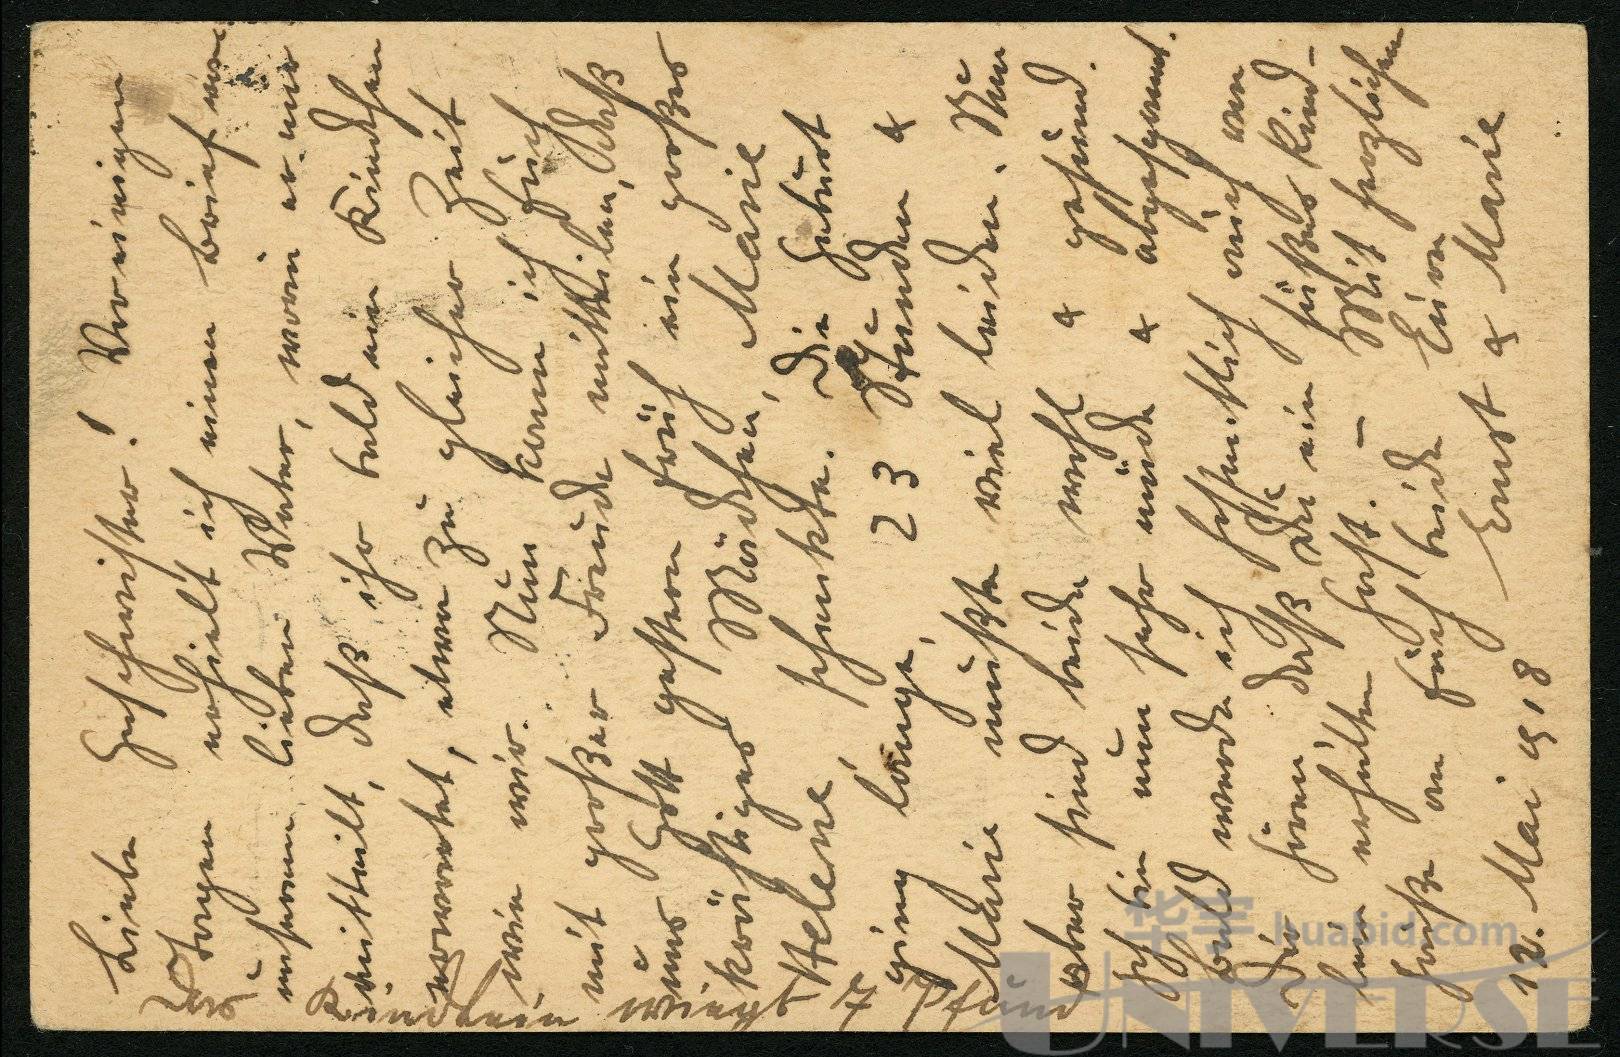 Liebe Geschwister! Vor einigen
Tagen erhielt ich einen Brief von
unserm lieben Vater, worin er mir
mitteilt, daß ihr bald ein Kindchen
erwartet, etwa zu gleicher Zeit
wie wir. Nun kann ich Euch
mit großer Freude mitteilen, daß
uns Gott gestern früh ein großes
kräftiges Mädchen, Marie
Helene, schenkte. Die Geburt
ging lange, 23 Stunden &
Marie mußte viel leiden. Nun
aber sind beide wohl & gesund.
Ich bin nun sehr müde & abgespannt.
Bald werde ich hoffentlich auch von
Dir hören daß Du ein süßes Kind-
lein erhalten hast. – Mit herzlichen
Grüße an Euch beide Euer
12. Mai 1918 Ernst & Marie
Das Kindlein wiegt 7 Pfund
华宇 huabid.com
UNIVERSE